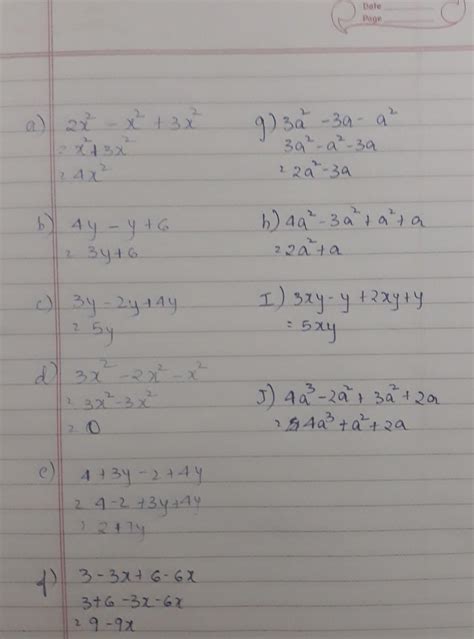 Date
Page
a) 2x² - x² + 3x²
= x² + 3x²
= 4x²
b) 4y - y + 6
= 3y + 6
c) 3y - 2y + 4y
= 5y
d) 3x² - 2x² - x²
= 3x² - 3x²
= 0
e) 4 + 3y - 2 + 4y
= 4 - 2 + 3y + 4y
= 2 + 7y
f) 3 - 3x + 6 - 6x
3 + 6 - 3x - 6x
= 9 - 9x
g) 3a² - 3a - a²
3a² - a² - 3a
= 2a² - 3a
h) 4a² - 3a² + a² + a
= 2a² + a
I) 3xy - y + 2xy + y
= 5xy
J) 4a³ - 2a² + 3a² + 2a
= 4a³ + a² + 2a